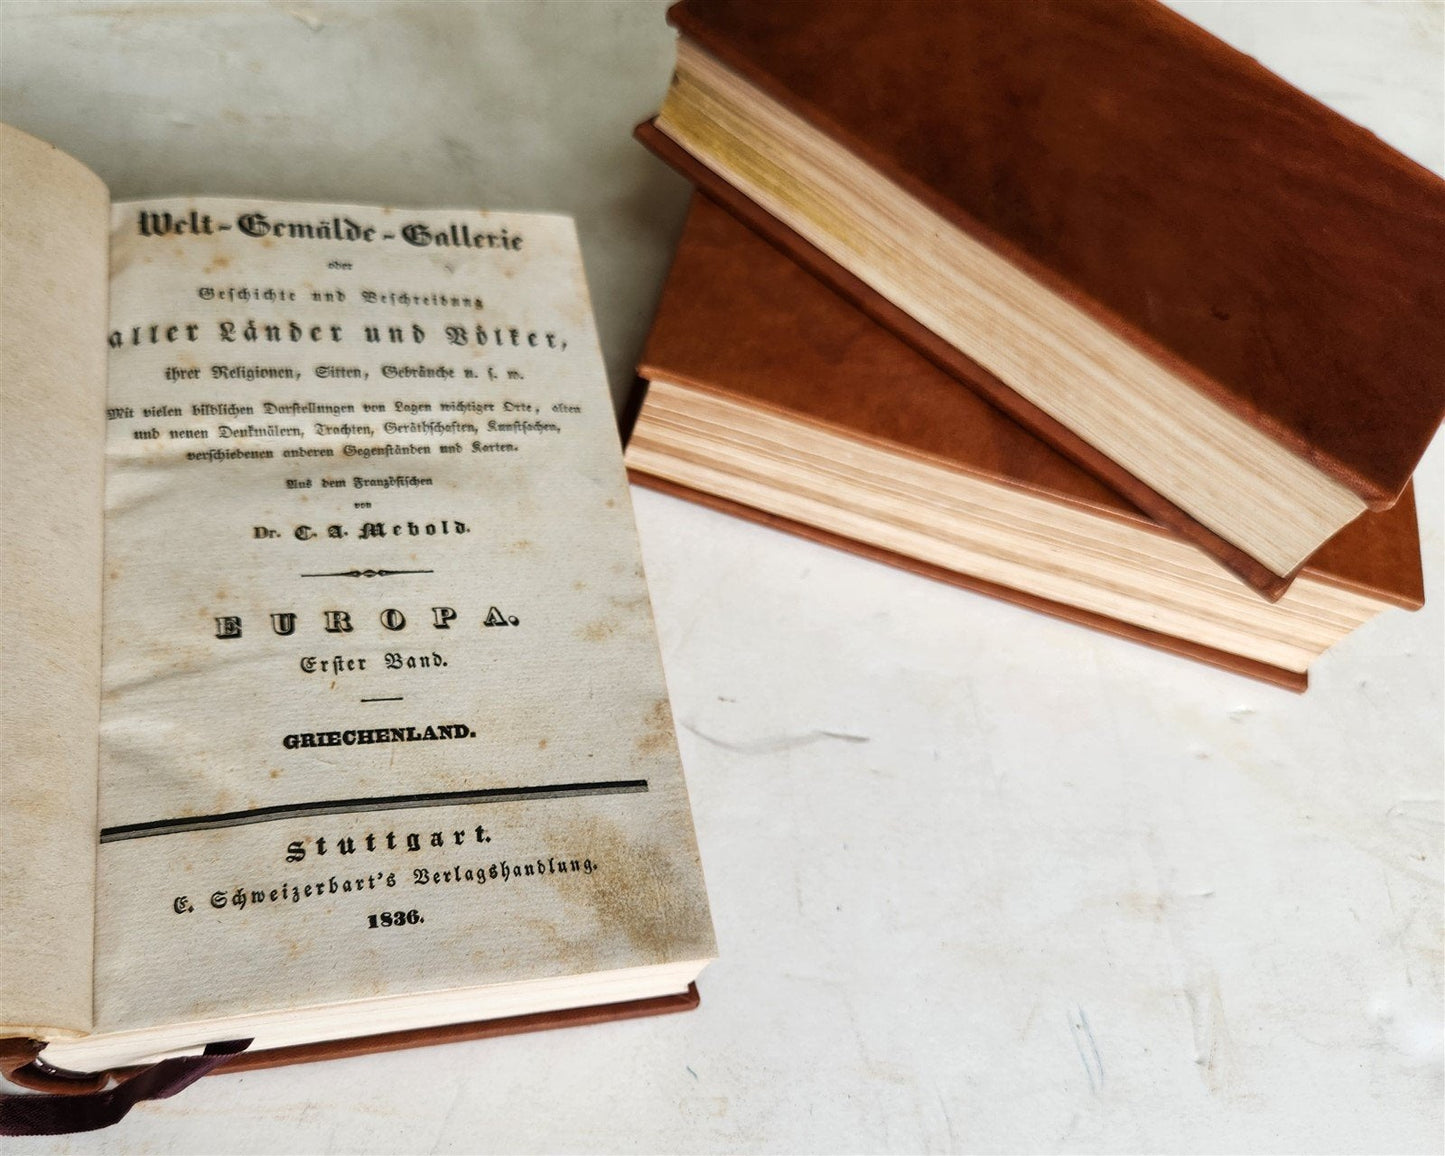 Welt-Gemälde-Gallerie
oder
Geschichte und Beschreibung
aller Länder und Völker,
ihrer Religionen, Sitten, Gebräuche u. s. w.
Mit vielen bildlichen Darstellungen von Lagen wichtiger Orte, alten
und neuen Denkmälern, Trachten, Geräthschaften, Kunstsachen,
verschiedenen anderen Gegenständen und Karten.
Aus dem Französischen
von
Dr. C. A. Mebold.
EUROPA.
Erster Band.
GRIECHENLAND.
Stuttgart.
E. Schweizerbart's Verlagshandlung.
1836.